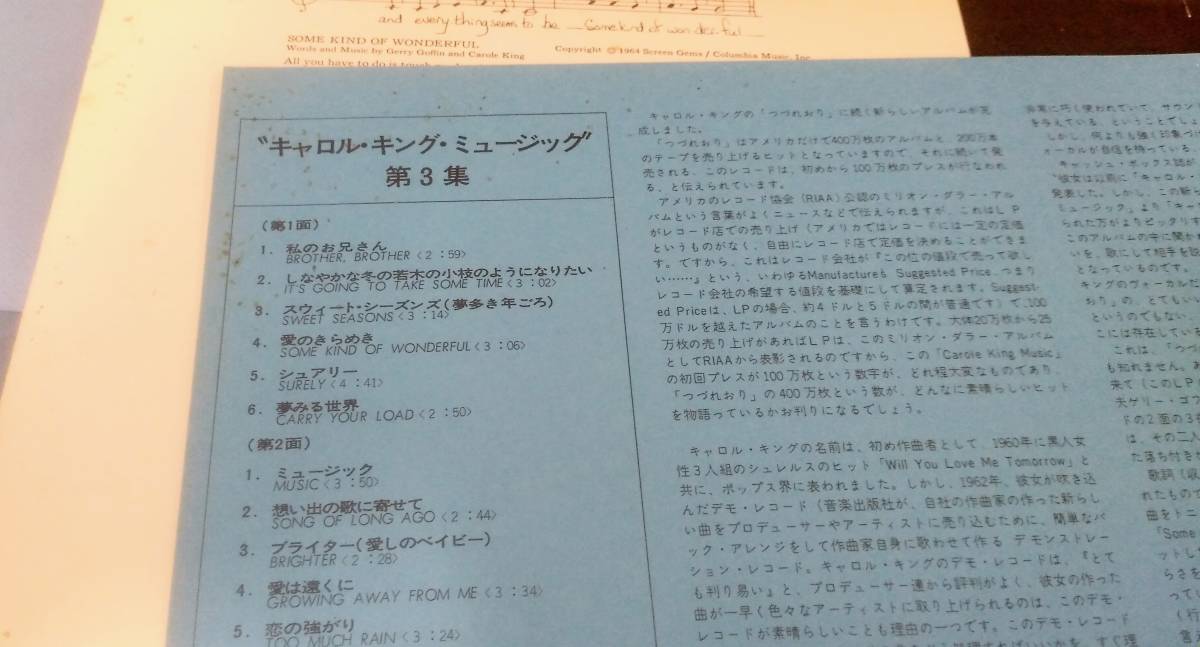 and everything seem to be Some kind of wonderful
SOME KIND OF WONDERFUL
Words and Music by Gerry Goffin and Carole King
Copyright © 1964 Screen Gems / Columbia Music, Inc.
All you have to do is touch
"キャロル・キング・ミュージック"
第3集
(第1面)
1. 私のお兄さん
BROTHER, BROTHER<2:59>
2. しなやかな冬の若木の小枝のようになりたい
IT'S GOING TO TAKE SOME TIME<3:02>
3. スウィート・シーズンズ(夢多き年ごろ)
SWEET SEASONS<3:14>
4. 愛のきらめき
SOME KIND OF WONDERFUL<3:06>
5. シュアリー
SURELY<4:41>
6. 夢みる世界
CARRY YOUR LOAD<2:50>
(第2面)
1. ミュージック
MUSIC<3:50>
2. 想い出の歌に寄せて
SONG OF LONG AGO<2:44>
3. ブライター(愛しのベイビー)
BRIGHTER<2:28>
4. 愛は遠くに
GROWING AWAY FROM ME<3:34>
5. 恋の強がり
TOO MUCH RAIN<3:24>
キャロル・キングの「つづれおり」に続く新らしいアルバムが完
成しました。
「つづれおり」はアメリカだけで400万枚のアルバムと、200万本
のテープを売り上げるヒットとなっていますので、それに続いて発
売される、このレコードは、初めから100万枚のプレスが行なわれ
る、と伝えられています。
アメリカのレコード協会(RIAA)公認のミリオン・ダラー・アル
バムという言葉がよくニュースなどで伝えられますが、これはLP
がレコード店での売り上げ(アメリカではレコードには一定の定価
というものがなく、自由にレコード店で定価を決めることができま
す。ですから、これはレコード会社が『この位の値段で売って欲し
い……』という、いわゆるManufacturers Suggested Price、つまり
レコード会社の希望する値段を基礎にして算定されます。Suggest-
ed Priceは、LPの場合、約4ドルと5ドルの間が普通です)で、100
万ドルを越えたアルバムのことを言うわけです。大体20万枚から25
万枚の売り上げがあればLPは、このミリオン・ダラー・アルバム
としてRIAAから表彰されるのですから、この「Carole King Music」
の初回プレスが100万枚という数字が、どれ程大変なものであり、
「つづれおり」の400万枚という数が、どんなに素晴らしいヒット
を物語っているかお判りになるでしょう。
キャロル・キングの名前は、初め作曲者として、1960年に黒人女
性3人組のシュレルスのヒット「Will You Love Me Tomorrow」と
共に、ポップス界に表われました。しかし、1962年、彼女が吹き込
んだデモ・レコード(音楽出版社が、自社の作曲家の作った新らし
い曲をプロデューサーやアーティストに売り込むために、簡単なバ
ック・アレンジをして作曲家自身に歌わせて作る デモンストレー
ション・レコード。キャロル・キングのデモ・レコードは、『とて
も判り易い』と、プロデューサー達から評判がよく、彼女の作った
曲が一早く色々なアーティストに取り上げられるのは、このデモ・
レコードが素晴らしいことも理由の一つです。このデモ・レコード
非常に巧く使われていて、サウン
を与えている、ということでしょ
しかし、何よりも強く印象づ
ォーカルが自信を持っている、
キャッシュ・ボックス誌が
"彼女は以前に「キャロル・
発表した。しかし、この新
ミュージック」より「キャ
られた方がよりビックリす
このアルバムの中に聞か
いを、歌にして相手を説
となっているのです。
キングのヴォーカルだ
おり」の、とてもい
というのでもない、
こには存在してい
これは、「つづ
も知れません。あ
来て(このLP
夫ゲリー・ゴフ
ドの2面の3
は、その二人
た落ち付き
歌詞(収
れたもので
曲をトニ
「Some
ットし
らさを
って
(行
言え